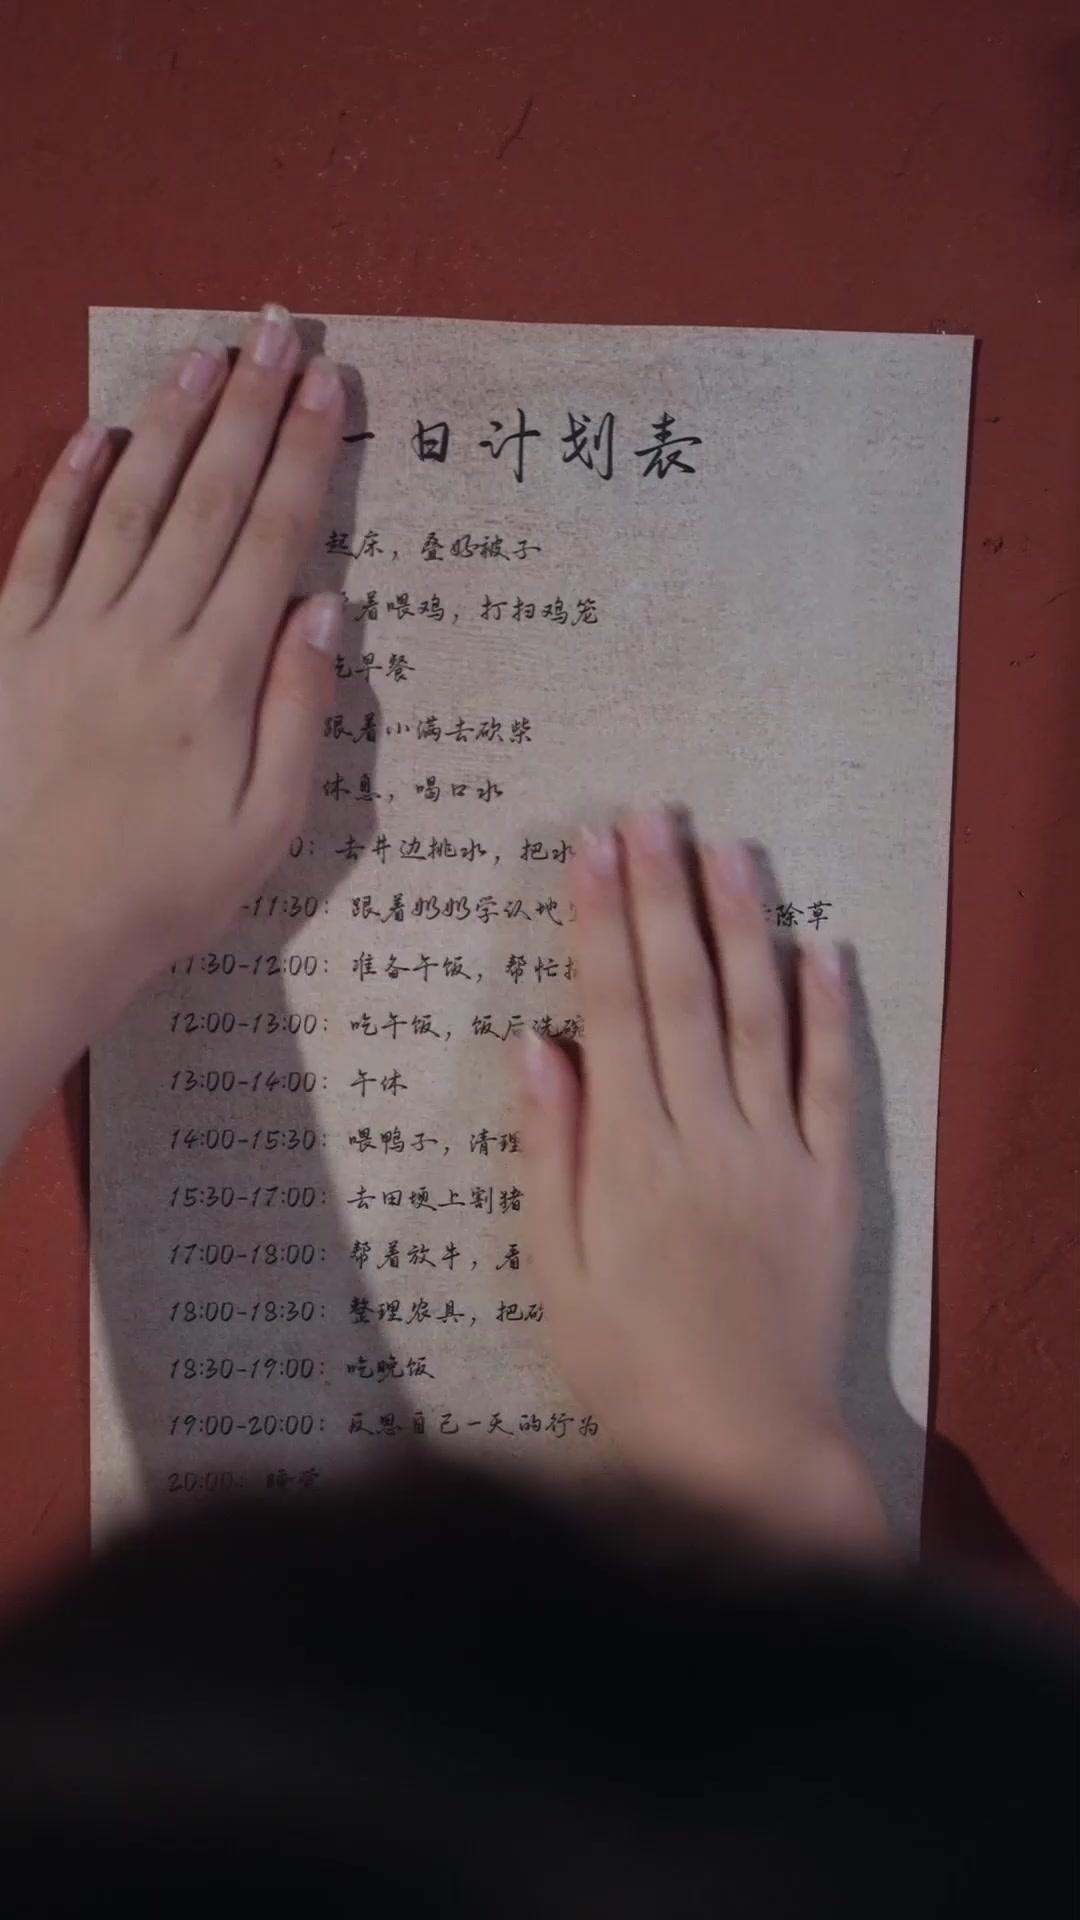 一日计划表
起床，叠好被子
着喂鸡，打扫鸡笼
吃早餐
跟着小满去砍柴
休息，喝口水
0：去井边挑水，把水
-11:30：跟着奶奶学认地 除草
11:30-12:00：准备午饭，帮忙
12:00-13:00：吃午饭，饭后洗碗
13:00-14:00：午休
14:00-15:30：喂鸭子，清理
15:30-17:00：去田埂上割猪
17:00-18:00：帮着放牛，看
18:00-18:30：整理农具，把
18:30-19:00：吃晚饭
19:00-20:00：反思自己一天的行为
20:00：睡觉